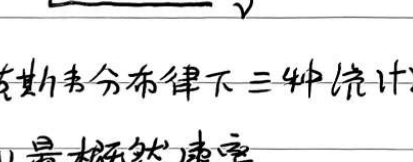 斯韦分布律下三种统计
最概然速率